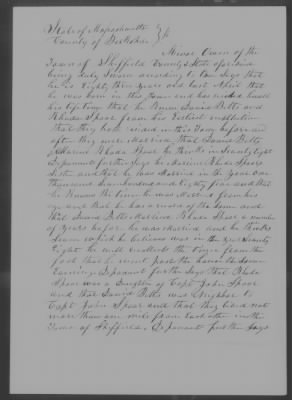 State of Massachusetts
County of Berkshire
Owen of the
Town of Sheffield County & State aforesaid
being duly sworn according to Law Says that
he is Eighty three years old last April that he
was born in this Town and has resided
his lifetime that he knew David Betts and
Rhoda Spoor from his Earliest recollection
that they both resided in this Town before and
after they were Married that David Betts
Married Rhoda Spoor
Deponent further Says he Married Rhoda Spoors
Sister and that he was Married in the year One
thousand Seven hundred and Eighty four and that
he knows the time he was Married from his
age and that he has a record of the same and
that David Betts Married Rhoda Spoor a number
of years before he was Married and he thinks
Seven which he believes was in the year Seventy
Eight he well recollects the time from the
fact that he went past the house the Same
Evening Deponant further Says that Rhoda
Spoor was a Daughter of Capt John Spoor
and that David Betts was Neighbor to
Capt John Spoor and that they lived not
more than one mile from each other in the
Town of Sheffield, Deponant further Says